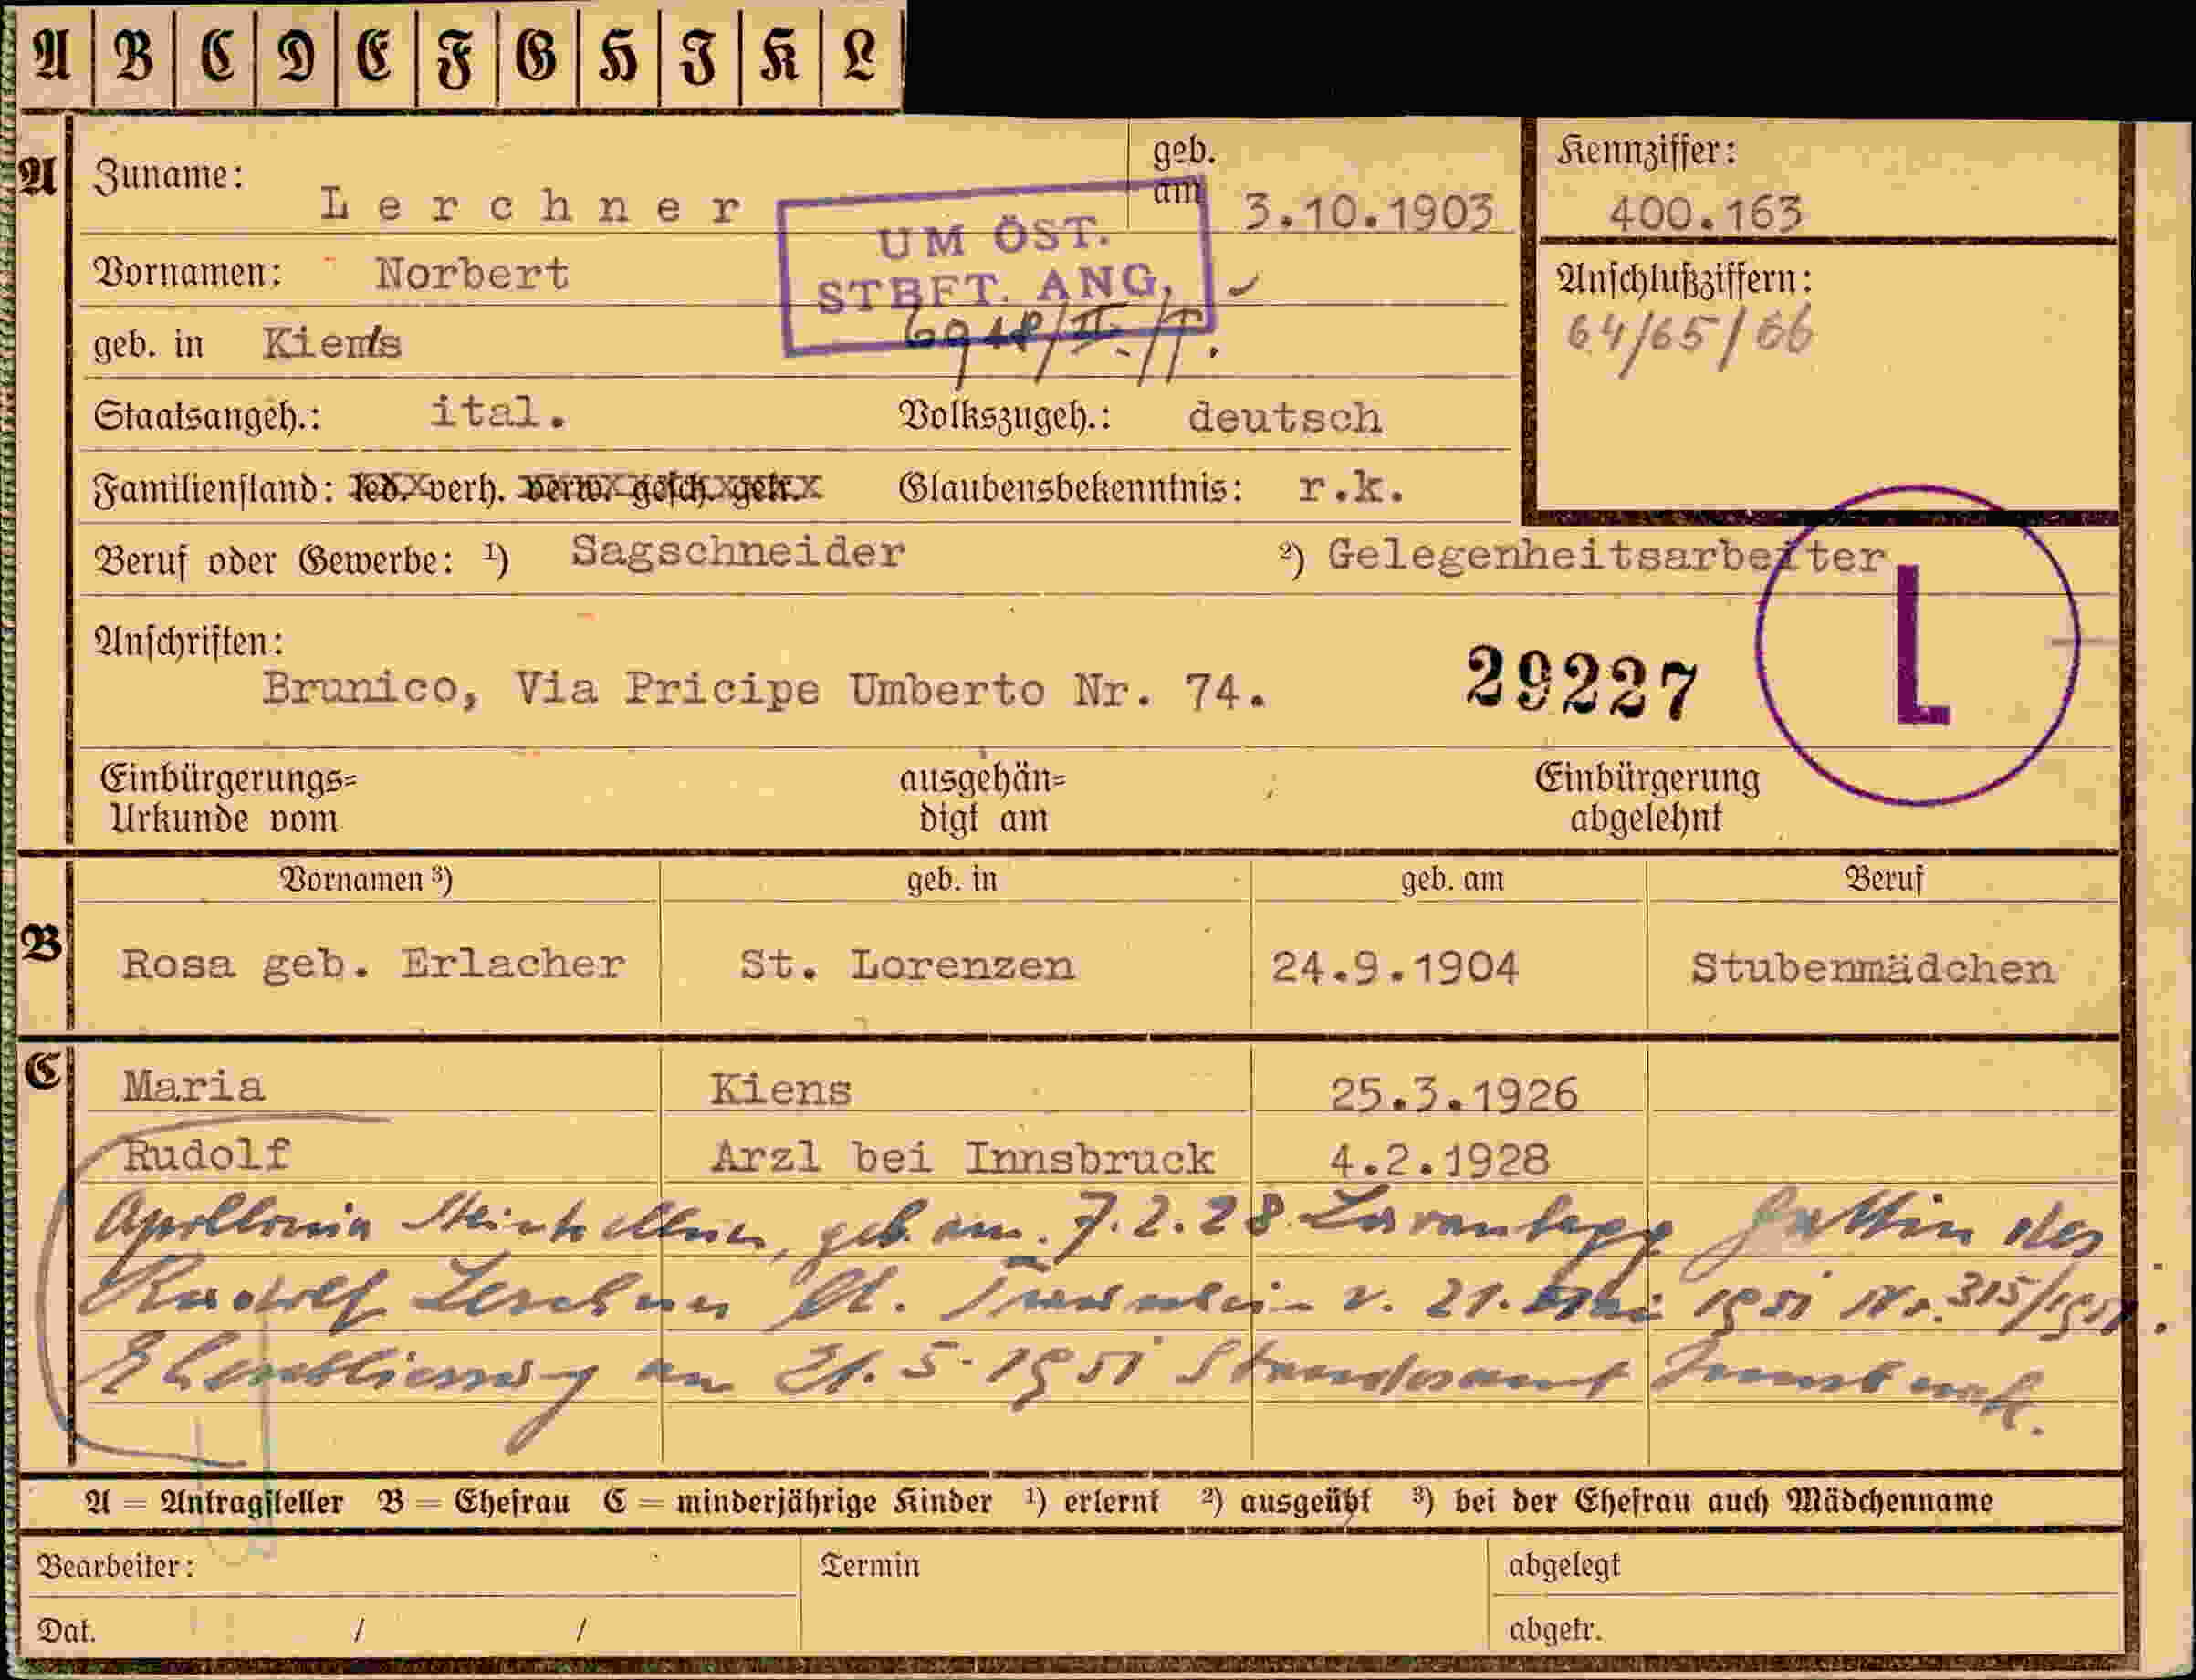 A B C D E F G H I K L
A Zuname: Lerchner geb. am 3.10.1903 Kennziffer: 400.163
UM ÖST.
STBFT. ANG.
Vornamen: Norbert
Anschlußziffern:
64/65/66
geb. in Kiens
Staatsangeh.: ital. Volkszugeh.: deutsch
Familienstand: led. verh. verw. gesch. getr. Glaubensbekenntnis: r.k.
Beruf oder Gewerbe: ¹) Sagschneider ²) Gelegenheitsarbeiter
L
Anschriften:
Brunico, Via Pricipe Umberto Nr. 74. 29227
Einbürgerungs= Urkunde vom ausgehän= digt am Einbürgerung abgelehnt
B Vornamen ³) geb. in geb. am Beruf
Rosa geb. Erlacher St. Lorenzen 24.9.1904 Stubenmädchen
C Maria Kiens 25.3.1926
Rudolf Arzl bei Innsbruck 4.2.1928
Apollonia geb. am. 7.2.28 Gattin des
Rudolf Lerchner lt. Trauschein v. 21. Mai 1951 Nr. 315/1951.
Eheschliessung am 21.5.1951 Standesamt Innsbruck.
A = Antragsteller B = Ehefrau C = minderjährige Kinder ¹) erlernt ²) ausgeübt ³) bei der Ehefrau auch Mädchenname
Bearbeiter: Termin abgelegt
Dat. / / abgetr.